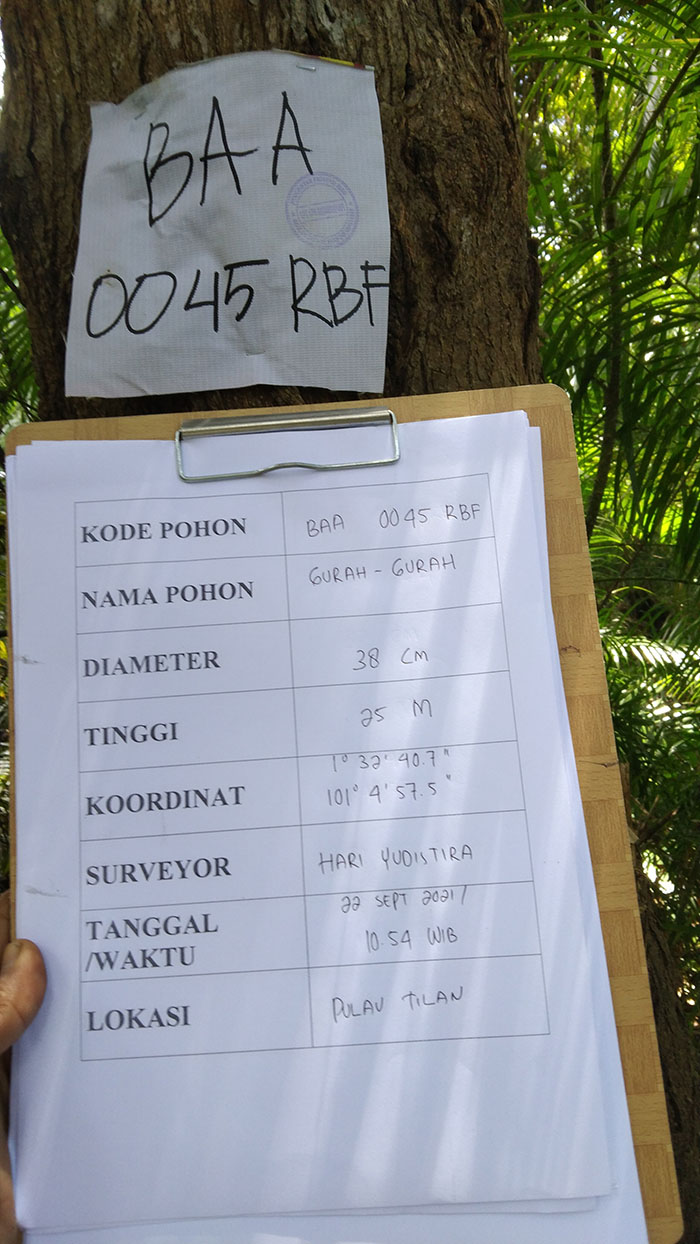 BAA
0045 RBF
KODE POHON BAA 0045 RBF
NAMA POHON GURAH - GURAH
DIAMETER 38 CM
TINGGI 25 M
KOORDINAT 1° 32' 40.7"
101° 4' 57.5"
SURVEYOR HARI YUDISTIRA
TANGGAL /WAKTU 22 SEPT 2021/
10.54 WIB
LOKASI PULAU TILAN